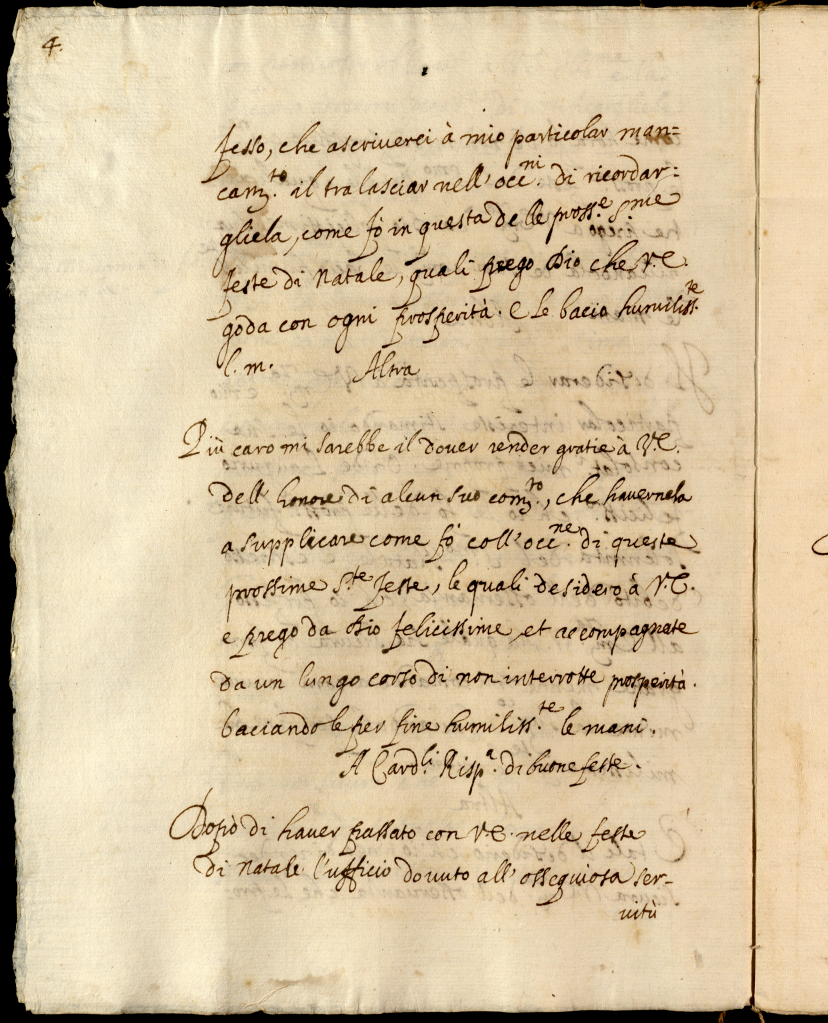 4.
fesso, che ascriverei à mio particolar man=
cam.to il tralasciar nell' occ.ni di ricordar=
gliela, come fò in questa delle pross.e S.me
feste di Natale, quali prego Dio che V.E.
goda con ogni prosperità. E le bacio humiliss.te
l. m. Altra
Più caro mi sarebbe il dover render gratie à V.E.
dell' honore di alcun suo com.to, che havernela
a supplicare come fò coll' occ.ne di queste
prossime S.te feste, le quali desidero à V.E.
e prego da Dio felicissime, et accompagnate
da un lungo corso di non interrotte prosperità.
baciandole per fine humiliss.te le mani.
A Card.li Risp.a di buone feste.
Doppò di haver passato con V.E. nelle feste
di Natale l'ufficio dovuto all' ossequiosa ser-
vitù